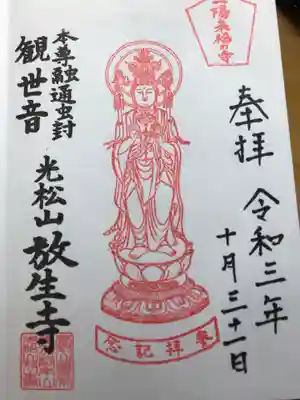 一陽来福の寺
奉拝
令和三年
十月三十一日
參拝記念
本尊融通虫封
観世音
光松山放生寺